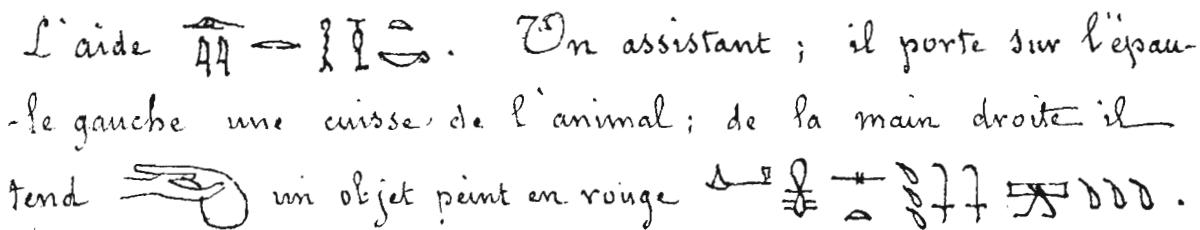 L'aide . Un assistant ; il porte sur l'épau-
-le gauche une cuisse de l'animal ; de la main droite il
tend un objet peint en rouge .